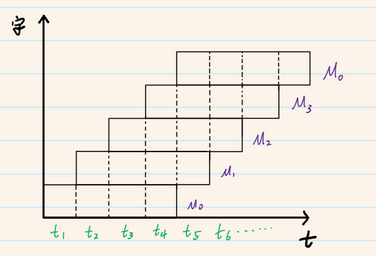 字
M₀
M₃
M₂
M₁
M₀
t₁ t₂ t₃ t₄ t₅ t₆ ······
t